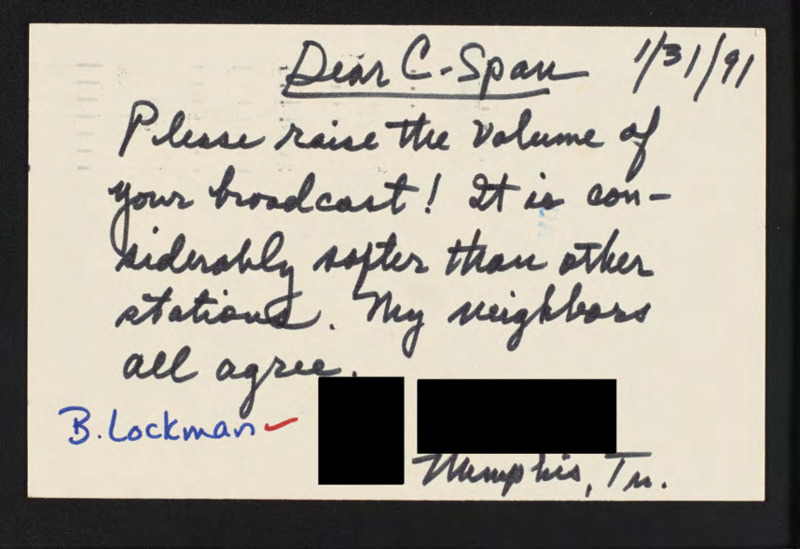 Dear C-Span 1/31/91
Please raise the volume of
your broadcast! It is con-
siderably softer than other
stations. My neighbors
all agree.
B. Lockman
Memphis, Tn.